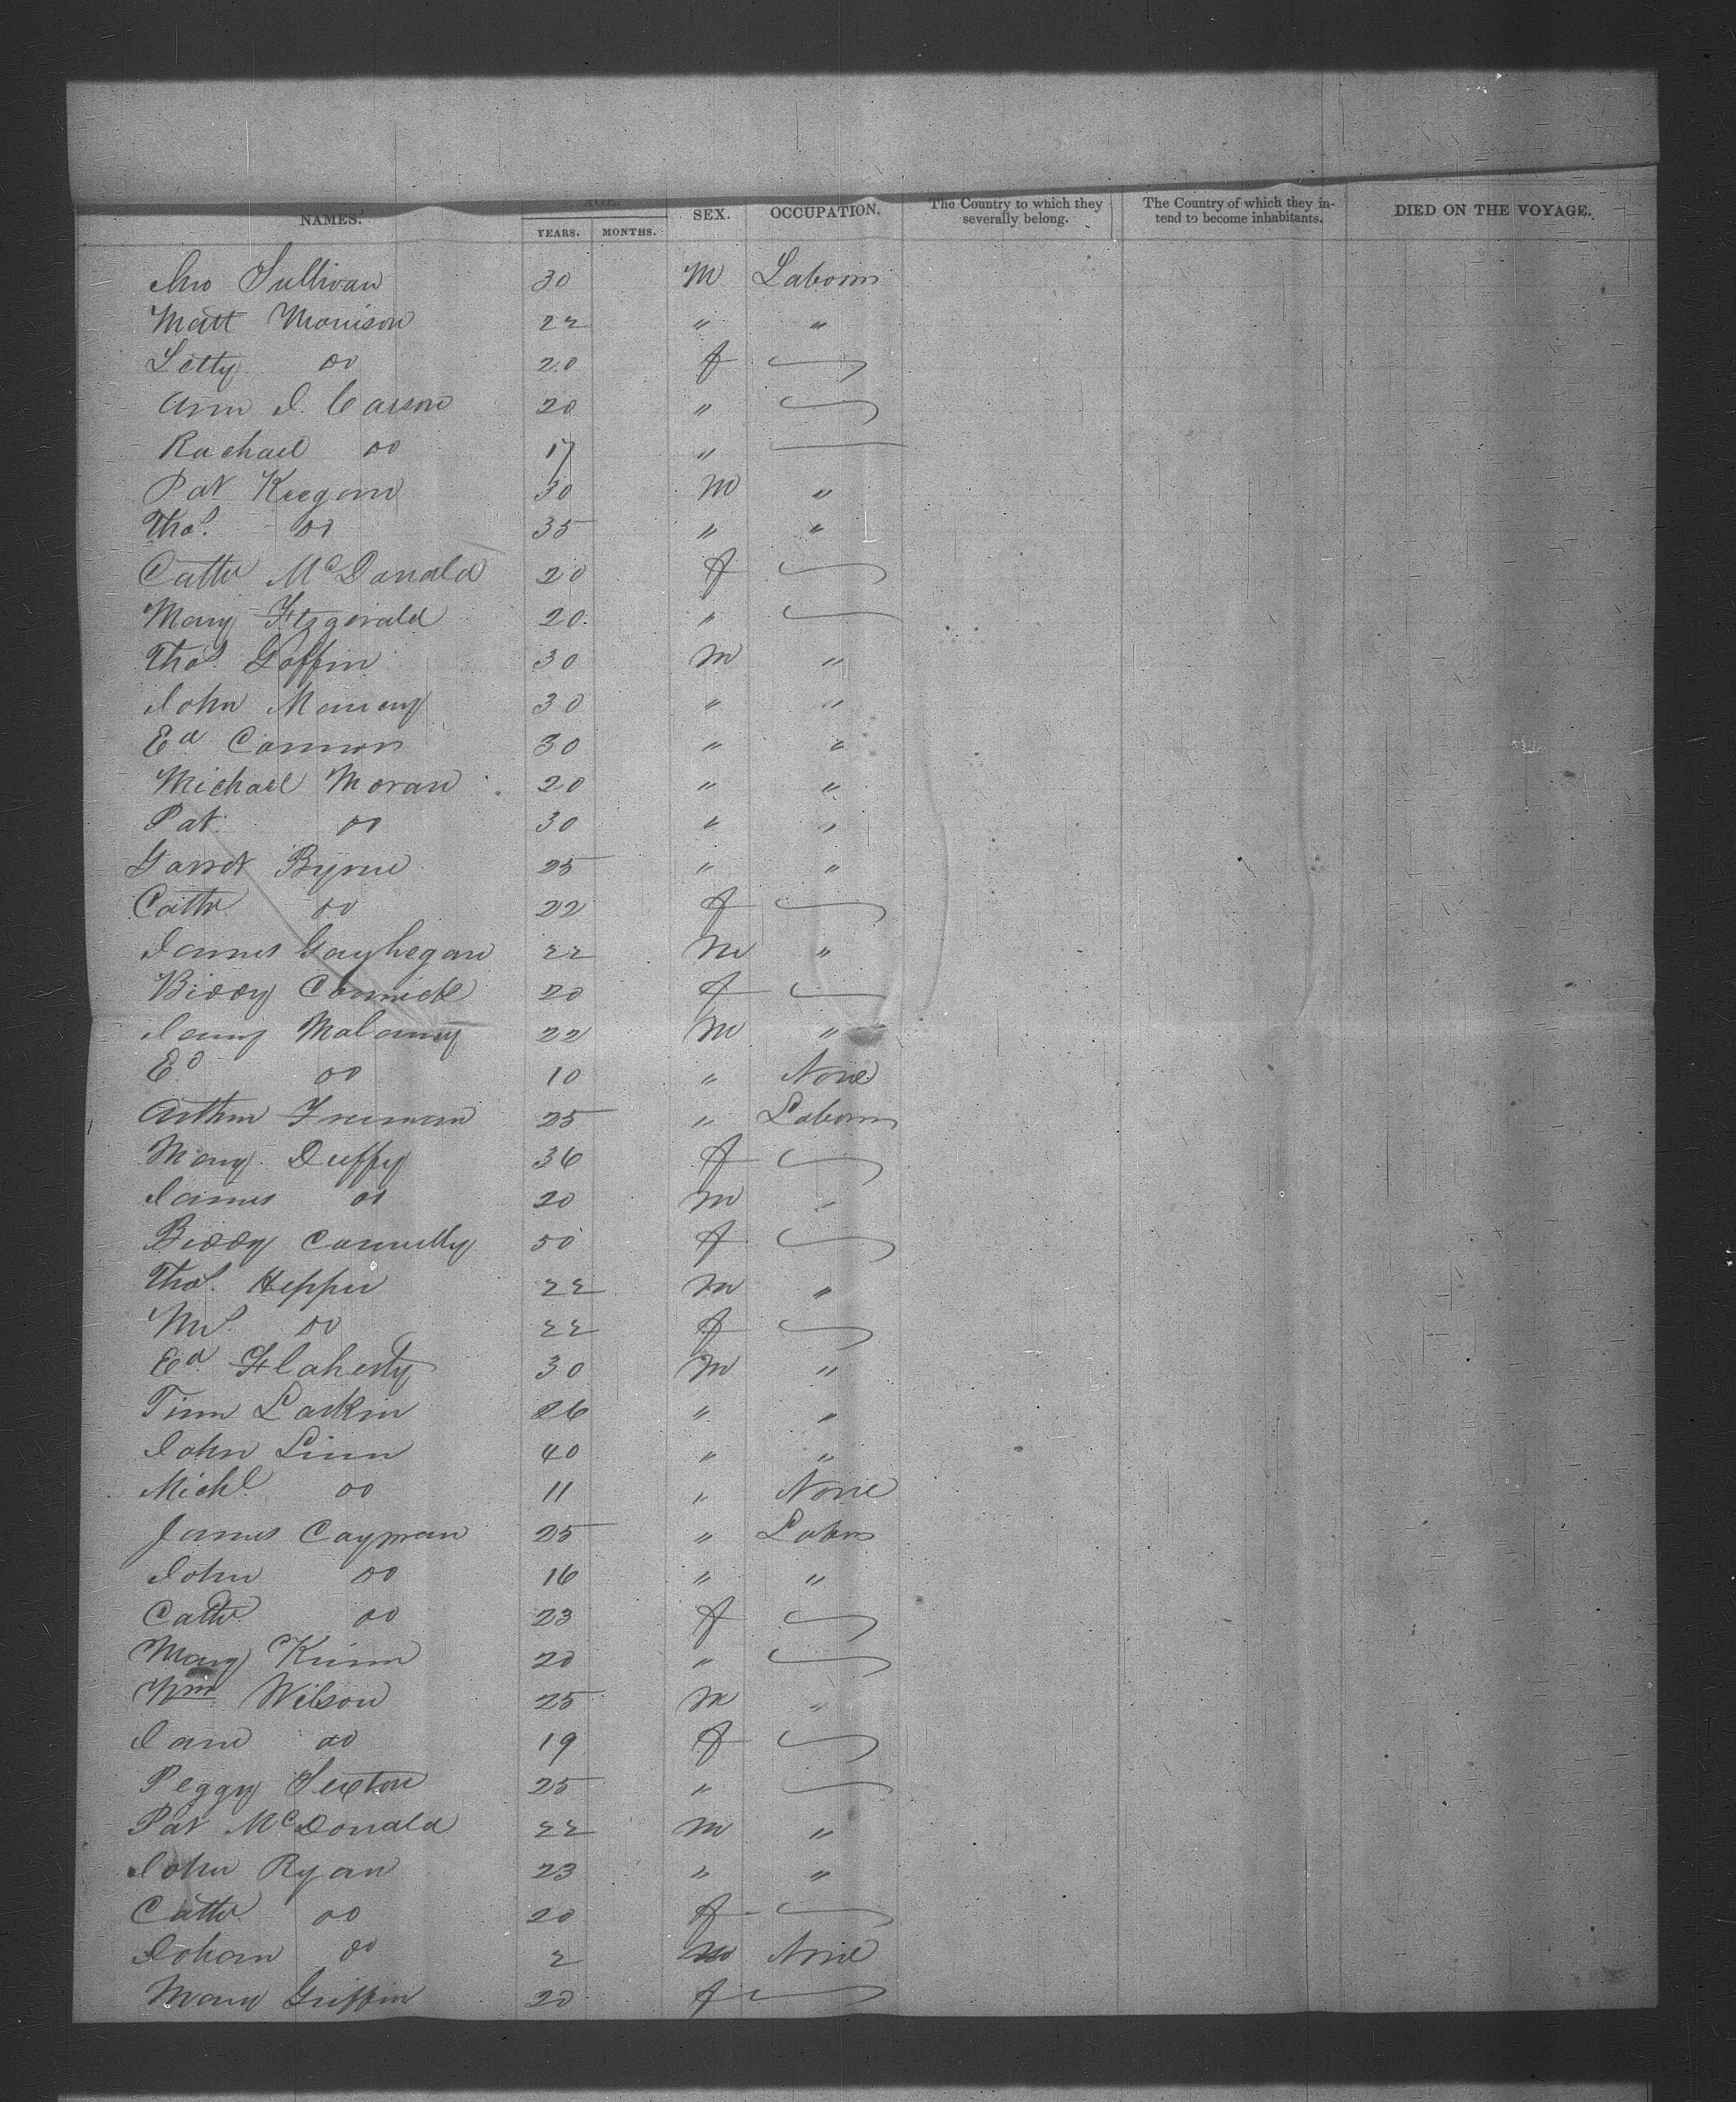 NAMES. AGE. SEX. OCCUPATION. The Country to which they severally belong. The Country of which they intend to become inhabitants. DIED ON THE VOYAGE.
YEARS. MONTHS.
Jno Sullivan 30 M Laborer
Matt Morrison 22 " "
Letty do 20 f
Ann J. Carson 20 "
Rachael do 17 "
Pat Keegan 30 M "
Thos. do 35 " "
Cathe McDonald 20 f
Mary Fitzgerald 20 "
Thos. Goffin 30 M "
John 30 " "
Ed Connor 30 " "
Michael Moran 20 " "
Pat do 30 " "
Garret Byrne 25 " "
Cathe do 22 f
James Gayhegan 22 M "
Biddy Cormick 20 f
James Malaney 22 M "
Ed do 10 " None
Arthur Freeman 25 " Laborer
Mary Duffy 36 f
James do 20 M "
Biddy Connelly 50 f
Thos. Hepper 22 M "
Mrs. do 22 f
Ed Flaherty 30 M "
Tim Larkin 26 " "
John Linn 40 " "
Michl do 11 " None
James Cayman 25 " Labor
John do 16 " "
Cathe do 23 f
Mary Kinn 20 "
Wm Wilson 25 M "
Jane do 19 f
Peggy Sexton 25 "
Pat McDonald 22 M "
John Ryan 23 " "
Cathe do 20 f
Johan do 2 M None
Mary Griffin 20 f